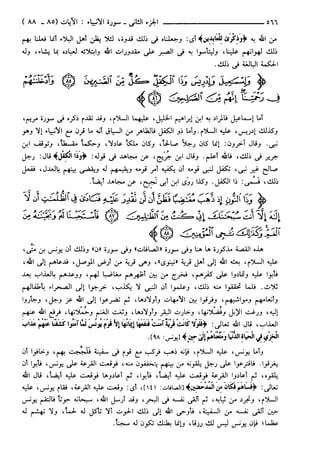 ٥٦٦ الجزء الثانى ـ سورة الأنبياء : الآيات (٨٥ ـ ٨٨ )
من الله به ﴿وَذِكْرَىٰ لِلْعَابِدِينَ﴾ أى: وجعلناه فى ذلك قدوة، لئلا يظن أهل البلاء أنما فعلنا بهم
ذلك لهوانهم علينا، وليتأسوا به فى الصبر على مقدورات الله وابتلائه لعباده بما يشاء، وله
الحكمة البالغة فى ذلك.
﴿وَإِسْمَاعِيلَ وَإِدْرِيسَ وَذَا الْكِفْلِ كُلٌّ مِنَ الصَّابِرِينَ ۝ وَأَدْخَلْنَاهُمْ
فِي رَحْمَتِنَا إِنَّهُمْ مِنَ الصَّالِحِينَ ۝﴾
أما إسماعيل فالمراد به ابن إبراهيم الخليل، عليهما السلام، وقد تقدم ذكره فى سورة مريم،
وكذلك إدريس، عليه السلام. وأما ذو الكفل فالظاهر من السياق أنه ما قرن مع الأنبياء إلا وهو
نبى. وقال آخرون: إنما كان رجلاً صالحاً، وكان ملكاً عادلاً، وحكماً مقسطاً، وتوقف ابن
جرير فى ذلك، فالله أعلم. وقال ابن جُرَيج، عن مجاهد فى قوله: ﴿وَذَا الْكِفْلِ﴾ قال: رجل
صالح غير نبى، تكفل لنبى قومه أن يكفيه أمر قومه ويقيمهم له ويقضى بينهم بالعدل، ففعل
ذلك، فسُمى: ذا الكفل. وكذا روى ابن أبى نَجِيح، عن مجاهد أيضاً.
هذه القصة مذكورة ها هنا وفى سورة «الصافات» وفى سورة «ن» وذلك أن يونس بن متَّى،
عليه السلام، بعثه الله إلى أهل قرية «نينوى»، وهى قرية من أرض الموصل، فدعاهم إلى الله،
فأبوا عليه وتمادوا على كفرهم، فخرج من بين أظهرهم مغاضباً لهم، ووعدهم بالعذاب بعد
ثلاث. فلما تحققوا منه ذلك، وعلموا أن النبى لا يكذب، خرجوا إلى الصحراء بأطفالهم
وأنعامهم ومواشيهم، وفرقوا بين الأمهات وأولادها، ثم تضرعوا إلى الله عز وجل، وجأروا
إليه، ورغت الإبل وفُصْلانها، وخارت البقر وأولادها، وثغت الغنم وحُمْلانها، فرفع الله عنهم
العذاب، قال الله تعالى: ﴿فَلَوْلَا كَانَتْ قَرْيَةٌ آمَنَتْ فَنَفَعَهَا إِيمَانُهَا إِلَّا قَوْمَ يُونُسَ لَمَّا آمَنُوا كَشَفْنَا عَنْهُمْ عَذَابَ
الْخِزْيِ فِي الْحَيَاةِ الدُّنْيَا وَمَتَّعْنَاهُمْ إِلَىٰ حِينٍ﴾ [يونس: ٩٨].
وأما يونس، عليه السلام، فإنه ذهب فركب مع قوم فى سفينة فلَجَّجت بهم، وخافوا أن
يغرقوا. فاقترعوا على رجل يلقونه من بينهم يتخففون منه، فوقعت القرعة على يونس، فأبوا أن
يلقوه، ثم أعادوا القرعة فوقعت عليه أيضاً، فأبوا، ثم أعادوها فوقعت عليه أيضاً، قال الله
تعالى: ﴿فَسَاهَمَ فَكَانَ مِنَ الْمُدْحَضِينَ﴾ [الصافات: ١٤١]، أى: وقعت عليه القرعة، فقام يونس، عليه
السلام، وتجرد من ثيابه، ثم ألقى نفسه فى البحر، وقد أرسل الله، سبحانه حوتاً فالتقم يونس
حين ألقى نفسه من السفينة، فأوحى الله إلى ذلك الحوت ألا تأكل له لحماً، ولا تهشم له
عظماً؛ فإن يونس ليس لك رزقا، وإنما بطنك تكون له سجناً.